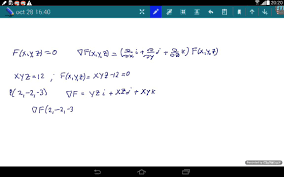 oct 28 16:40
20:20
F(x,y,z)=0 ∇F(x,y,z) = (∂/∂x i + ∂/∂y j + ∂/∂z k) F(x,y,z)
xyz=12 ; F(x,y,z) = xyz-12=0
P(2,-2,-3) ∇F = yz i + xz j + xy k
∇F(2,-2,-3